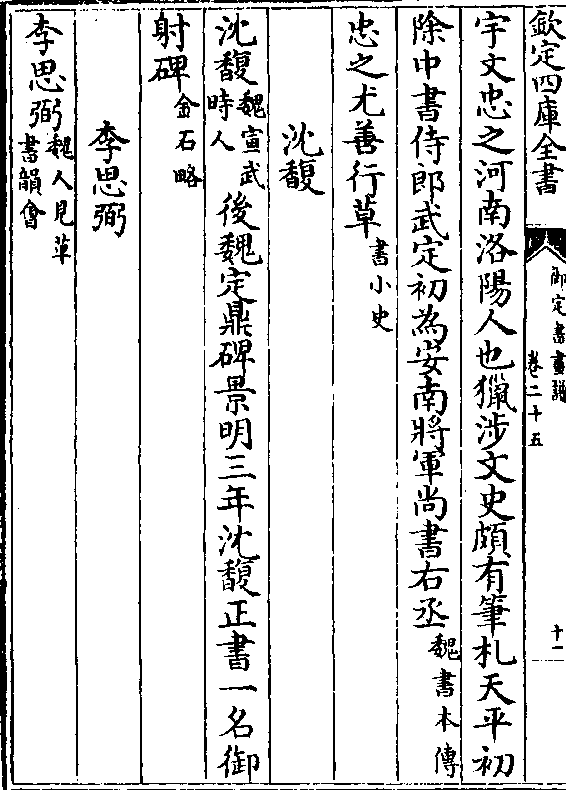 欽定四庫全書
御定書畫譜
卷二十五
十一
宇文忠之河南洛陽人也獵涉文史頗有筆札天平初
除中書侍郎武定初為安南將軍尚書右丞魏書本傳
忠之尤善行草書小史
沈馥
沈馥魏宣武時人後魏定鼎碑景明三年沈馥正書一名御
射碑金石略
李思弼
李思弼魏人見草書韻會